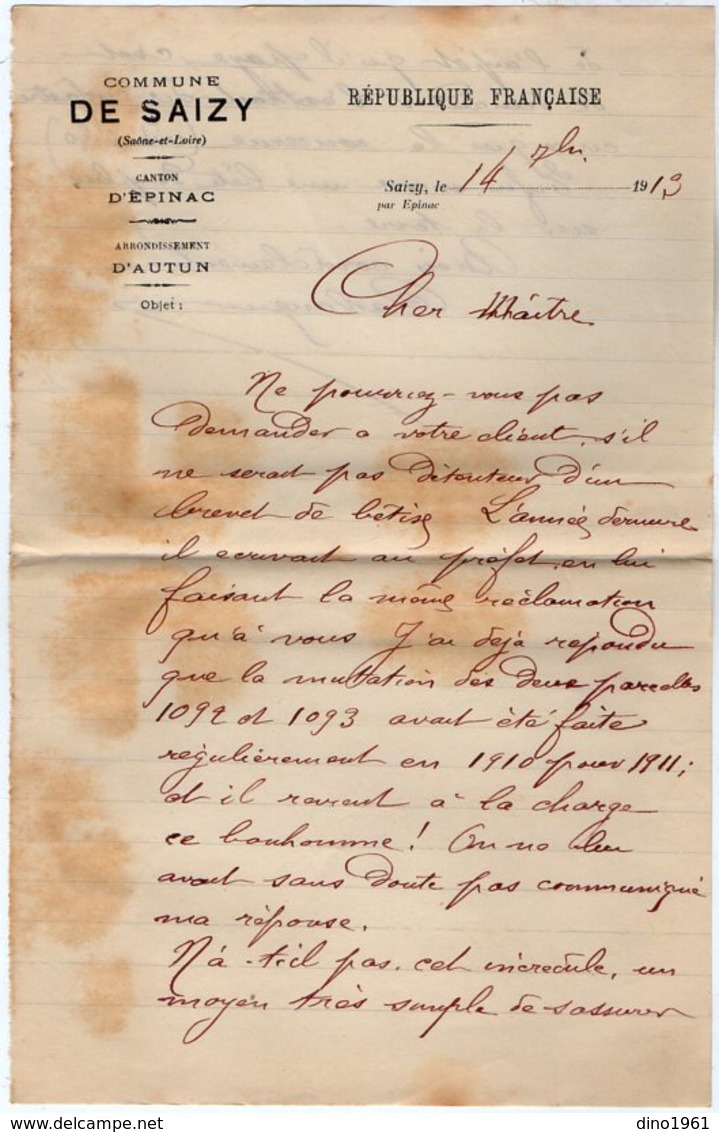 COMMUNE
DE SAIZY
(Saône-et-Loire)
CANTON
D'ÉPINAC
ARRONDISSEMENT
D'AUTUN
Objet :
RÉPUBLIQUE FRANÇAISE
Saizy, le 14 7bre 1913
par Epinac
Cher Maître
Ne pourriez-vous pas
demander a votre client, s'il
ne serait pas détenteur d'un
brevet de bêtise L'année dernière
il ecrivait au préfet, en lui
faisant la même réclamation
qu'à vous J'ai déjà repondu
que la mutation des deux parcelles
1092 et 1093 avait été faite
régulièrement en 1910 pour 1911 ;
et il revient à la charge
ce bonhomme ! On ne lui
avait sans doute pas communiqué
ma réponse.
N'a-t-il pas, cet incredule, un
moyen très simple de s'assurer
dino1961